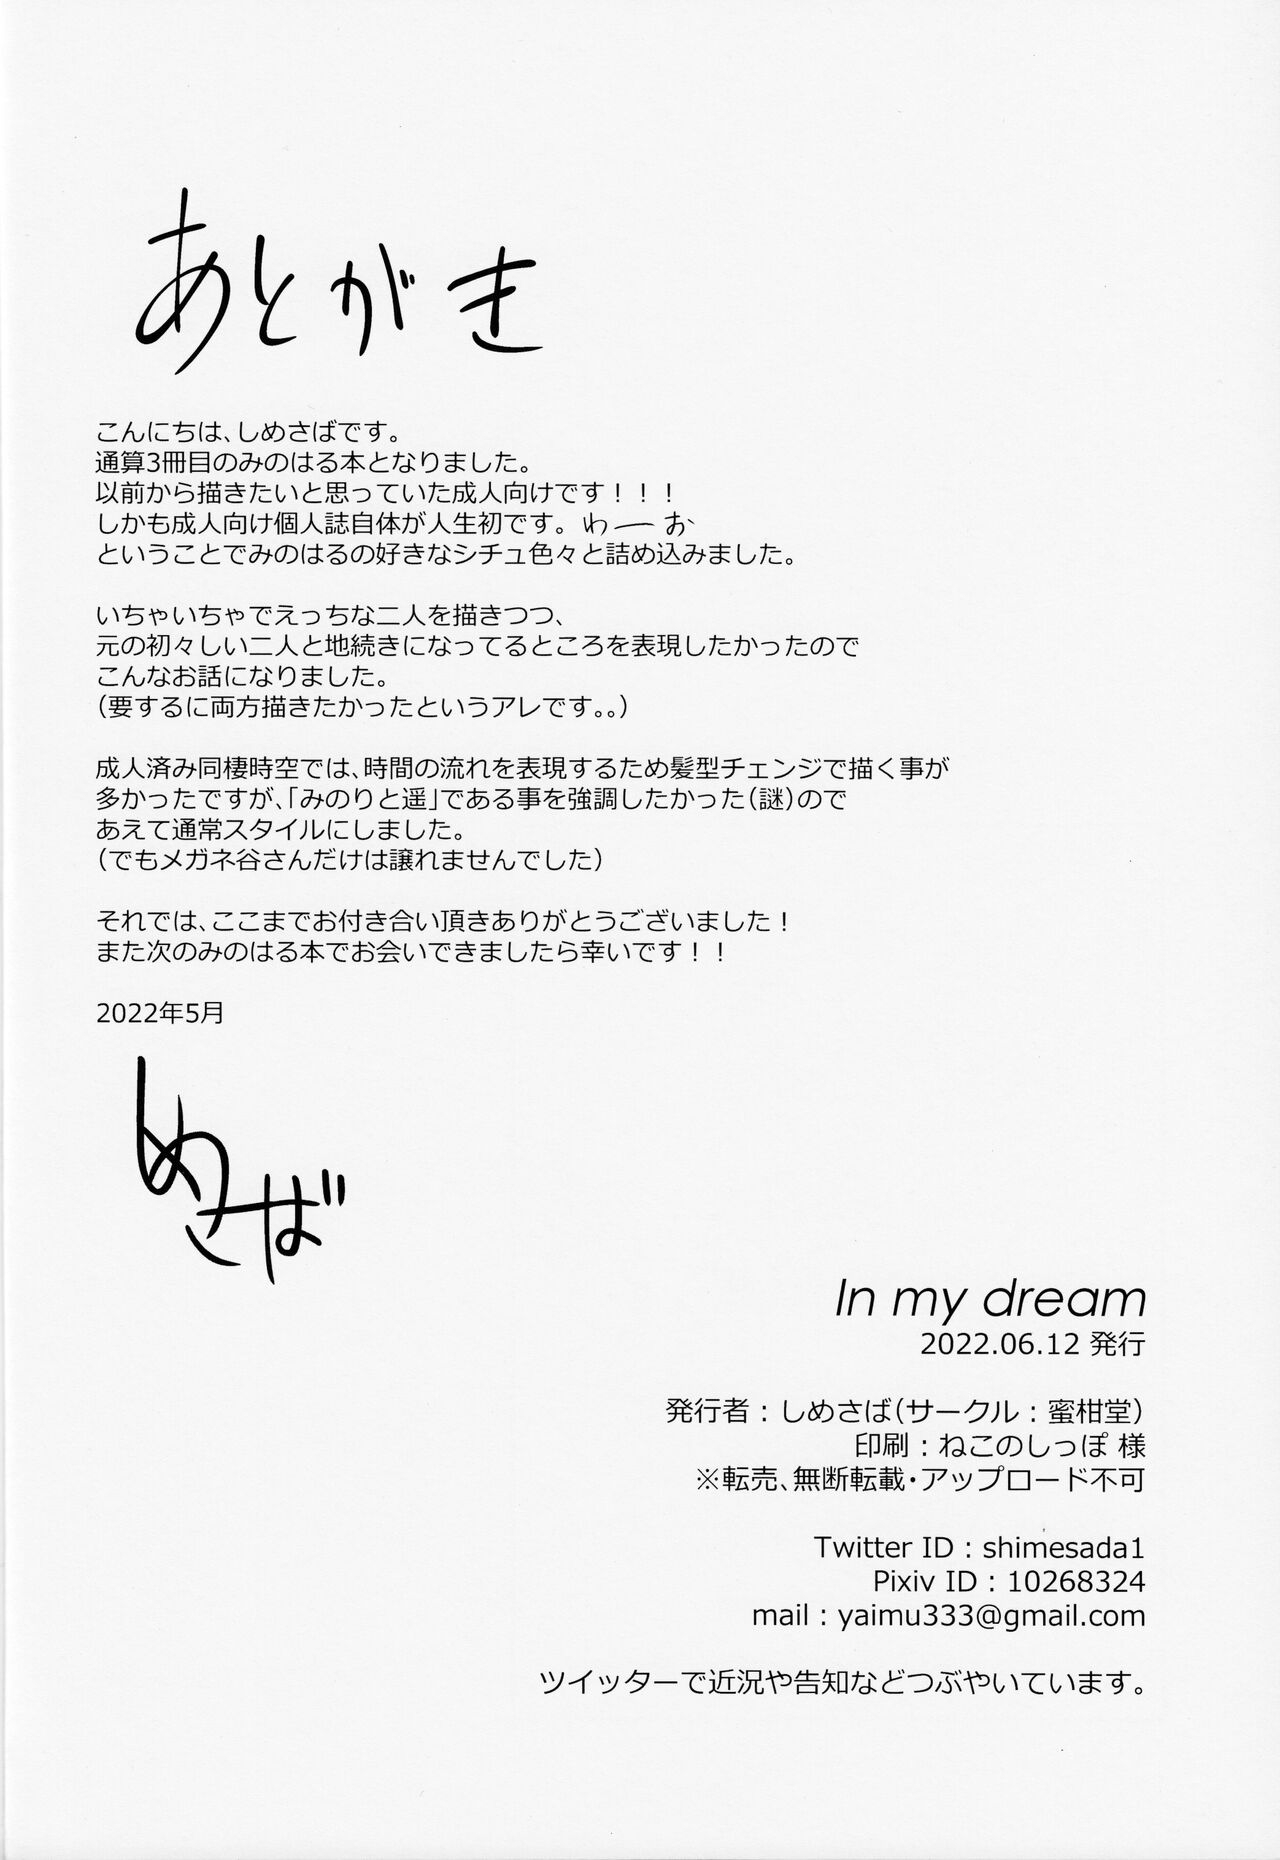 あとがき
こんにちは、しめさばです。
通算3冊目のみのはる本となりました。
以前から描きたいと思っていた成人向けです！！！
しかも成人向け個人誌自体が人生初です。わーお
ということでみのはるの好きなシチュ色々と詰め込みました。
いちゃいちゃでえっちな二人を描きつつ、
元の初々しい二人と地続きになってるところを表現したかったので
こんなお話になりました。
（要するに両方描きたかったというアレです。。）
成人済み同棲時空では、時間の流れを表現するため髪型チェンジで描く事が
多かったですが、「みのりと遥」である事を強調したかった（謎）ので
あえて通常スタイルにしました。
（でもメガネ谷さんだけは譲れませんでした）
それでは、ここまでお付き合い頂きありがとうございました！
また次のみのはる本でお会いできましたら幸いです！！
2022年5月
しめさば
In my dream
2022.06.12 発行
発行者：しめさば（サークル：蜜柑堂）
印刷：ねこのしっぽ 様
※転売、無断転載・アップロード不可
Twitter ID : shimesada1
Pixiv ID : 10268324
mail : yaimu333@gmail.com
ツイッターで近況や告知などつぶやいています。